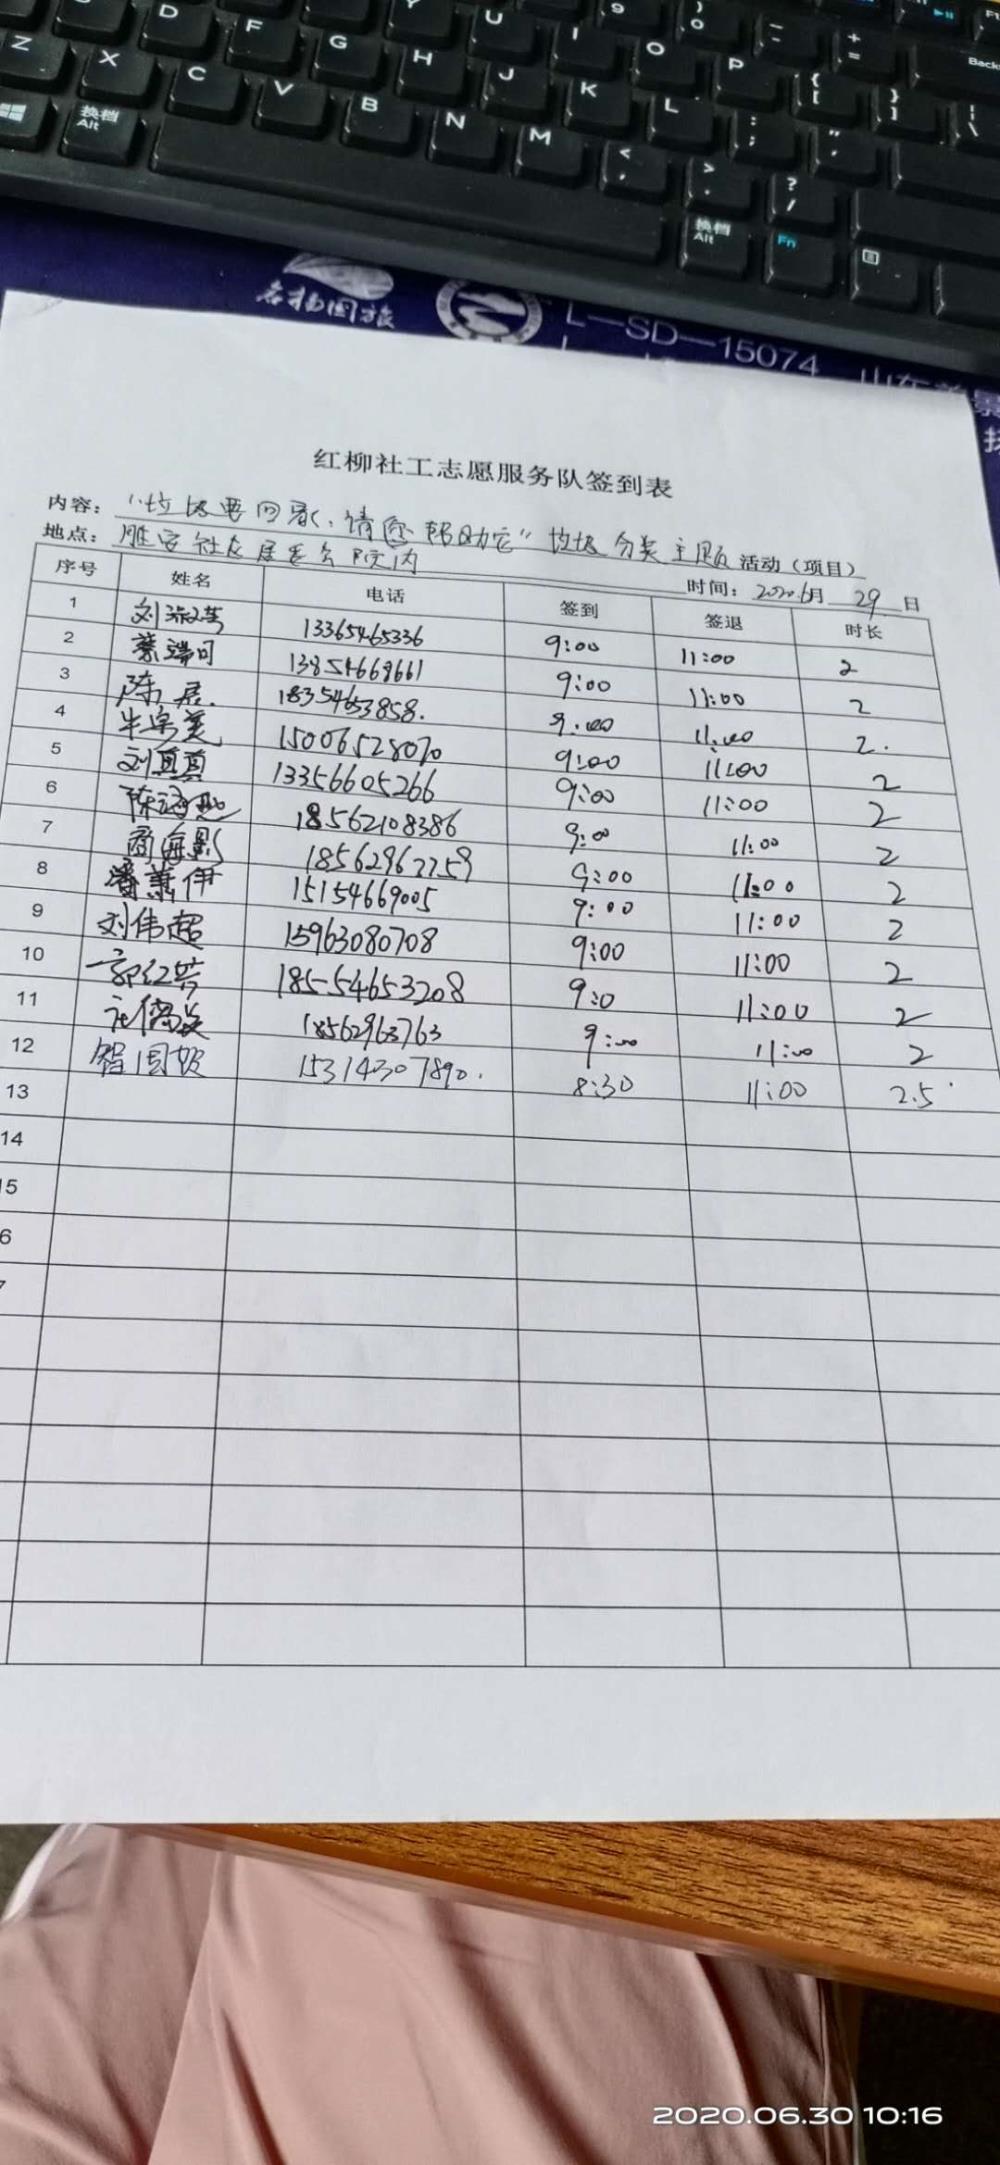 D F G H J K L
U I O P
Z X C V B N M
换档 Alt
换档 Alt Fn
Back
名扬国旅
L—SD—15074
红柳社工志愿服务队签到表
内容：“垃圾要回家，请您帮助它”垃圾分类主题活动（项目）
地点：胜安社区居委会院内 时间：2020.6月 29 日
序号 姓名 电话 签到 签退 时长
1 13365465336 9:00 11:00 2
2 蔡端可 13854669661 9:00 11:00 2
3 陈居. 18354653858. 9:00 11:00 2.
4 15006528070 9:00 11:00 2
5 刘真真 13356605266 9:00 11:00 2
6 18562108386 9:00 11:00 2
7 商海影 18562962259 9:00 11:00 2
8 潘萧伊 15154669005 9:00 11:00 2
9 刘伟超 15963080708 9:00 11:00 2
10 郭红芳 18554653208 9:0 11:00 2
11 18562963763 9:00 11:00 2
12 15314307890. 8:30 11:00 2.5
13
14
15
6
7
2020.06.30 10:16